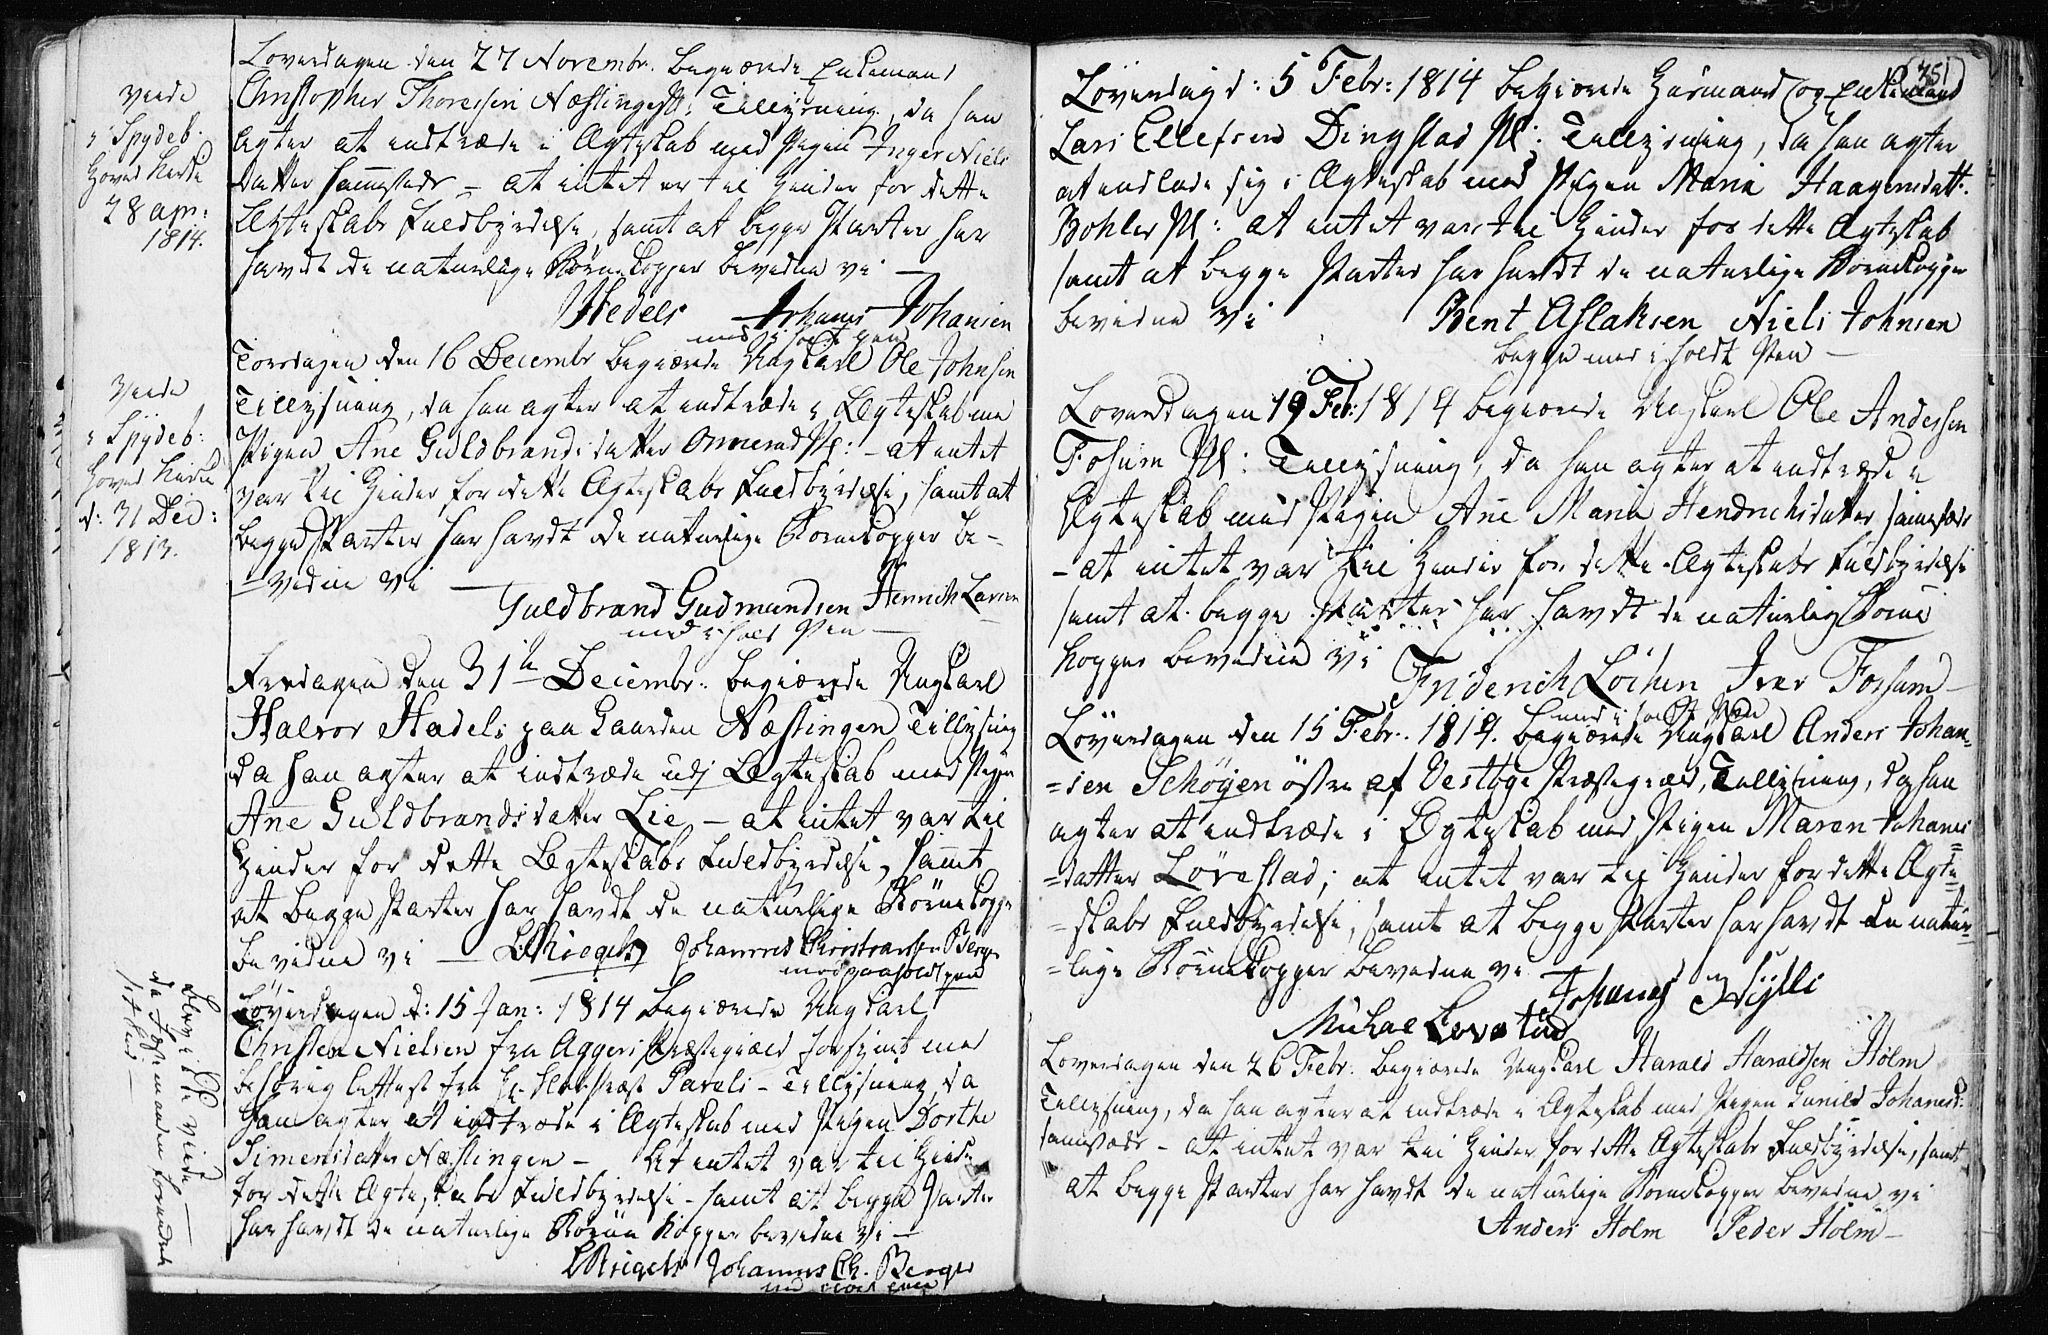 Loverdagen den 27 Novembr. begiærede Enkemand
Christopher Thoressen Næslingen Pl: Tillysning, da han
agter at indtræde i Ægteskab med Pigen Inger Niels
datter sammesteds – at intet er til Hinder for dette
Ægteskabs Fuldbyrdelse, samt at begge Parter har
havdt de naturlige Börnekopper bevidne vi –
Hedels Johanis Johansen
med i holdt pen
viede
i Spydeb.
Hoved Kirke
28 apr:
1814.
Torsdagen den 16 Decembr begiærede Ungkarl Ole Johnsen
Tillysning, da han agter at indtræde i Ægteskab med
Pigen Ane Guldbrandsdatter Pl: – at intet
var til Hinder for dette Ægteskabs Fuldbyrdelse, samt at
begge Parter har havdt de naturlige Bornekopper be-
-vidne vi – Guldbrand Gudmundsen Henrich Larsen
med i hold Pen –
Viede
i Spydeb:
Hoved Kirke
d: 31 Dec:
1813.
Fredagen den 31te Decembr: begiærede Ungkarl
Halvor Hadels paa Gaarden Næslingen Tillysning
da han agter at indtræde udj Ægteskab med Pigen
Ane Guldbrandsdatter Lie – at intet var til
Hinder for dette Ægteskabs Fuldbyrdelse, samt
at begge Parter har havdt de naturlige Börnekopper
bevidne vi – Johannes Christiansen Berger
med paaholdt pen
Löverdagen d: 15 Jan: 1814 begiærede Ungkarl
Christen Nielsen fra Aggers Præstegield forsynt med
behörig Attest fra Hr. Pavels – Tillysning, da
han agter at indtræde i Ægteskab med Pigen Dorthe
Simensdatter Næslingen – at intet var til Hinder
for dette Ægteskabs Fuldbyrdelse – samt at begge Parter
har havdt de naturlige Börnekopper bevidne vi –
Johannes Ch. Berger
med holdt pen
Blev ikke viede –
da Fæstemanden forandret
sit Sind –
351
Löverdag d: 5 Febr: 1814 begiærede Huusmand og Enkemand
Lars Ellefsen Dingstad Pl: Tillysning, da han agter
at indlade sig i Ægteskab med Pigen Maria Haagensdatt.
Bohler Pl: at intet var til Hinder for dette Ægteskab
samt at begge Parter har havdt de naturlige Bornekopper
bevidne vi Bent Aslaksen Niels Johnsen
begge med i holdt Pen –
Loverdagen 19 Feb: 1814 begiærede Ungkarl Ole Andersen
Fosum Pl: Tillysning, da han agter at indtræde i
Ægteskab med Pigen Ane Maria Hendrichsdatter sammesteds
– at intet var til Hinder for dette Ægteskabs Fuldbyrdelse
samt at begge Parter har havdt de naturlig Börne
kopper bevidne vi Friderich Löchen Iver Fossum –
med i holdt Pen
Löverdagen den 15 Febr. 1814. begiærede Ungkarl Anders Johan-
=sen Schöyen östre af Vestbye Præstegield, Tillysning, da han
agter at indtræde i Ægteskab med Pigen Maren Johanis
=datter Lövestad; at intet var til Hinder for dette Ægte=
=skabs Fuldbyrdelse, samt at begge Parter har havdt de natur=
=lige Börnekopper bevidne vi
Johanes
Michael Lovestad
Loverdagen den 26 Febr. begiærede Ungkarl Harald Haraldsen Holm
Tillysning, da han agter at indtræde i Ægteskab med Pigen Gunild Johanesd:
sammesteds – at intet var til Hinder for dette Ægteskabs Fuldbyrdelse, samt
at begge Parter har havdt de naturlige Bornekopper bevidne vi
Anders Holm Peder Holm –